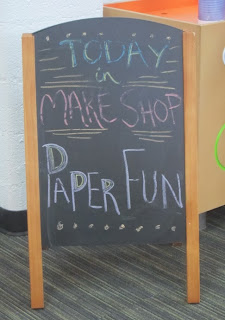 TODAY
in
MAKE SHOP
PAPER FUN